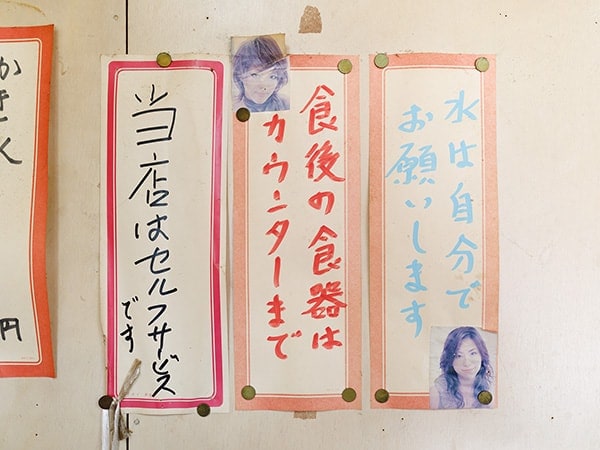 水は自分で
お願いします
食後の食器は
カウンターまで
当店はセルフサービス
です
円